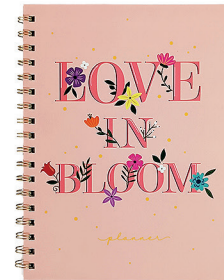 LOVE
IN
BLOOM
planner